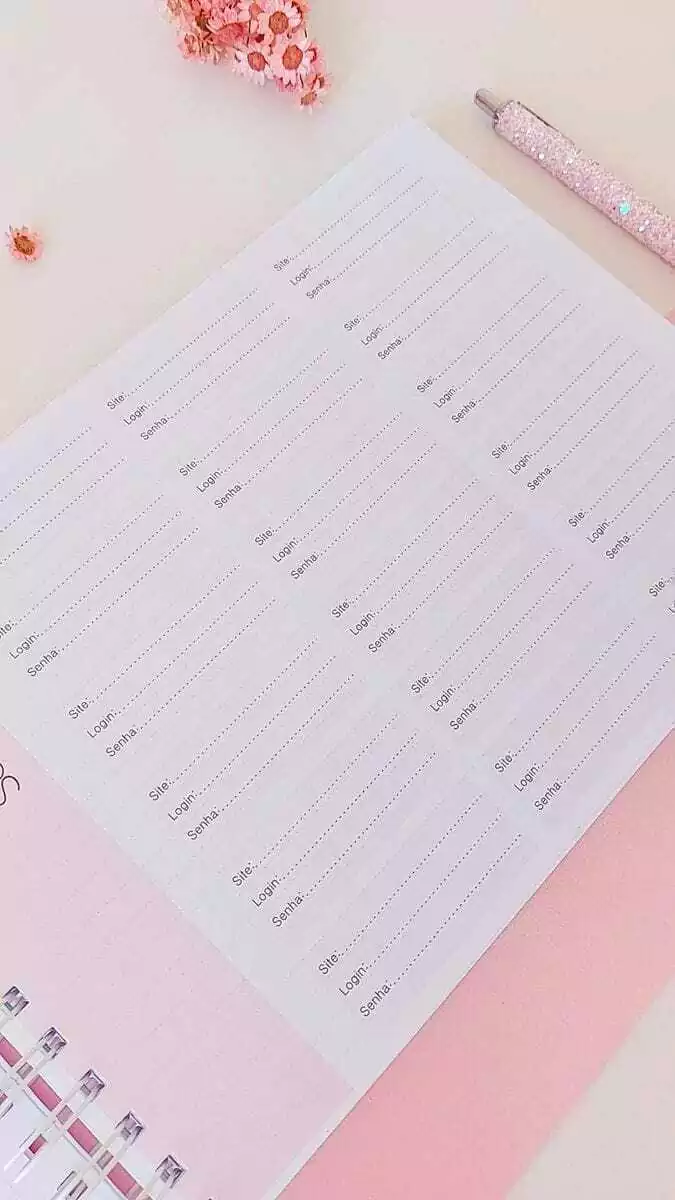 Login:
Senha:
Site:
Login:
Senha:
Site:
Login:
Senha:
Site:
Login:
Senha:
Site:
Login:
Senha:
Site:
Login:
Senha:
Site:
Login:
Senha:
Site:
Login:
Senha:
Site:
Login:
Senha:
Site:
Login:
Senha:
Site:
Login:
Senha:
Site:
Login:
Senha:
Site:
Login:
Senha:
Site:
Login:
Senha:
Site:
Login:
Senha:
Site:
Login:
Senha:
Site: